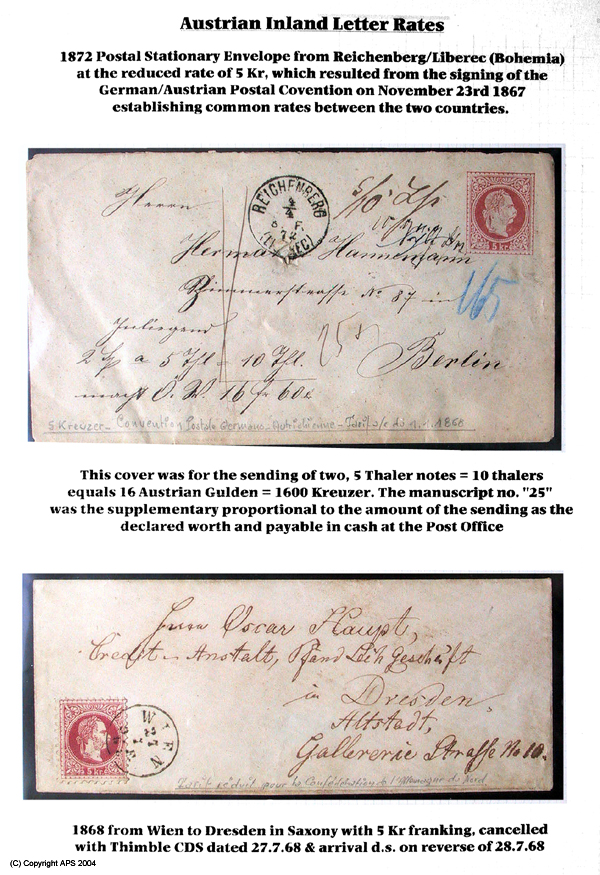 Austrian Inland Letter Rates
1872 Postal Stationary Envelope from Reichenberg/Liberec (Bohemia)
at the reduced rate of 5 Kr, which resulted from the signing of the
German/Austrian Postal Covention on November 23rd 1867
establishing common rates between the two countries.
REICHENBERG
4
4
72
5 kr.
Herrn
Herman Hannemann
Zimmerstrasse No 87 in
165
Berlin
Inliegend
2 a 5 Thl = 10 Thl.
macht Ö. W. 16 fr 60
5 Kreuzer - Convention Postale Germano-Autrichienne - Tarif du 1.1.1868
This cover was for the sending of two, 5 Thaler notes = 10 thalers
equals 16 Austrian Gulden = 1600 Kreuzer. The manuscript no. "25"
was the supplementary proportional to the amount of the sending as the
declared worth and payable in cash at the Post Office
Herrn Oscar Haupt,
Credit-Anstalt, Pfand Leih Geschäft
in Dresden
Altstadt,
Gallererie Strasse No 10.
5 kr.
WIEN
Tarif réduit pour la Confédération de l'Allemagne du Nord
1868 from Wien to Dresden in Saxony with 5 Kr franking, cancelled
with Thimble CDS dated 27.7.68 & arrival d.s. on reverse of 28.7.68
(C) Copyright APS 2004